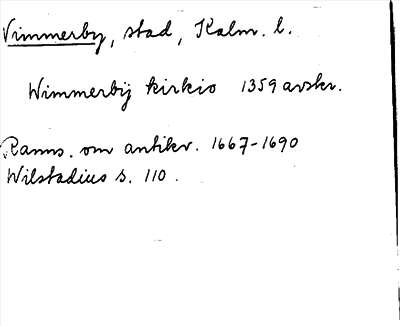 Vimmerby, stad, Kalm. l.
Wimmerbÿ kirkio 1359 avskr.
Ranns. om antikv. 1667-1690
Wilstadius s. 110.